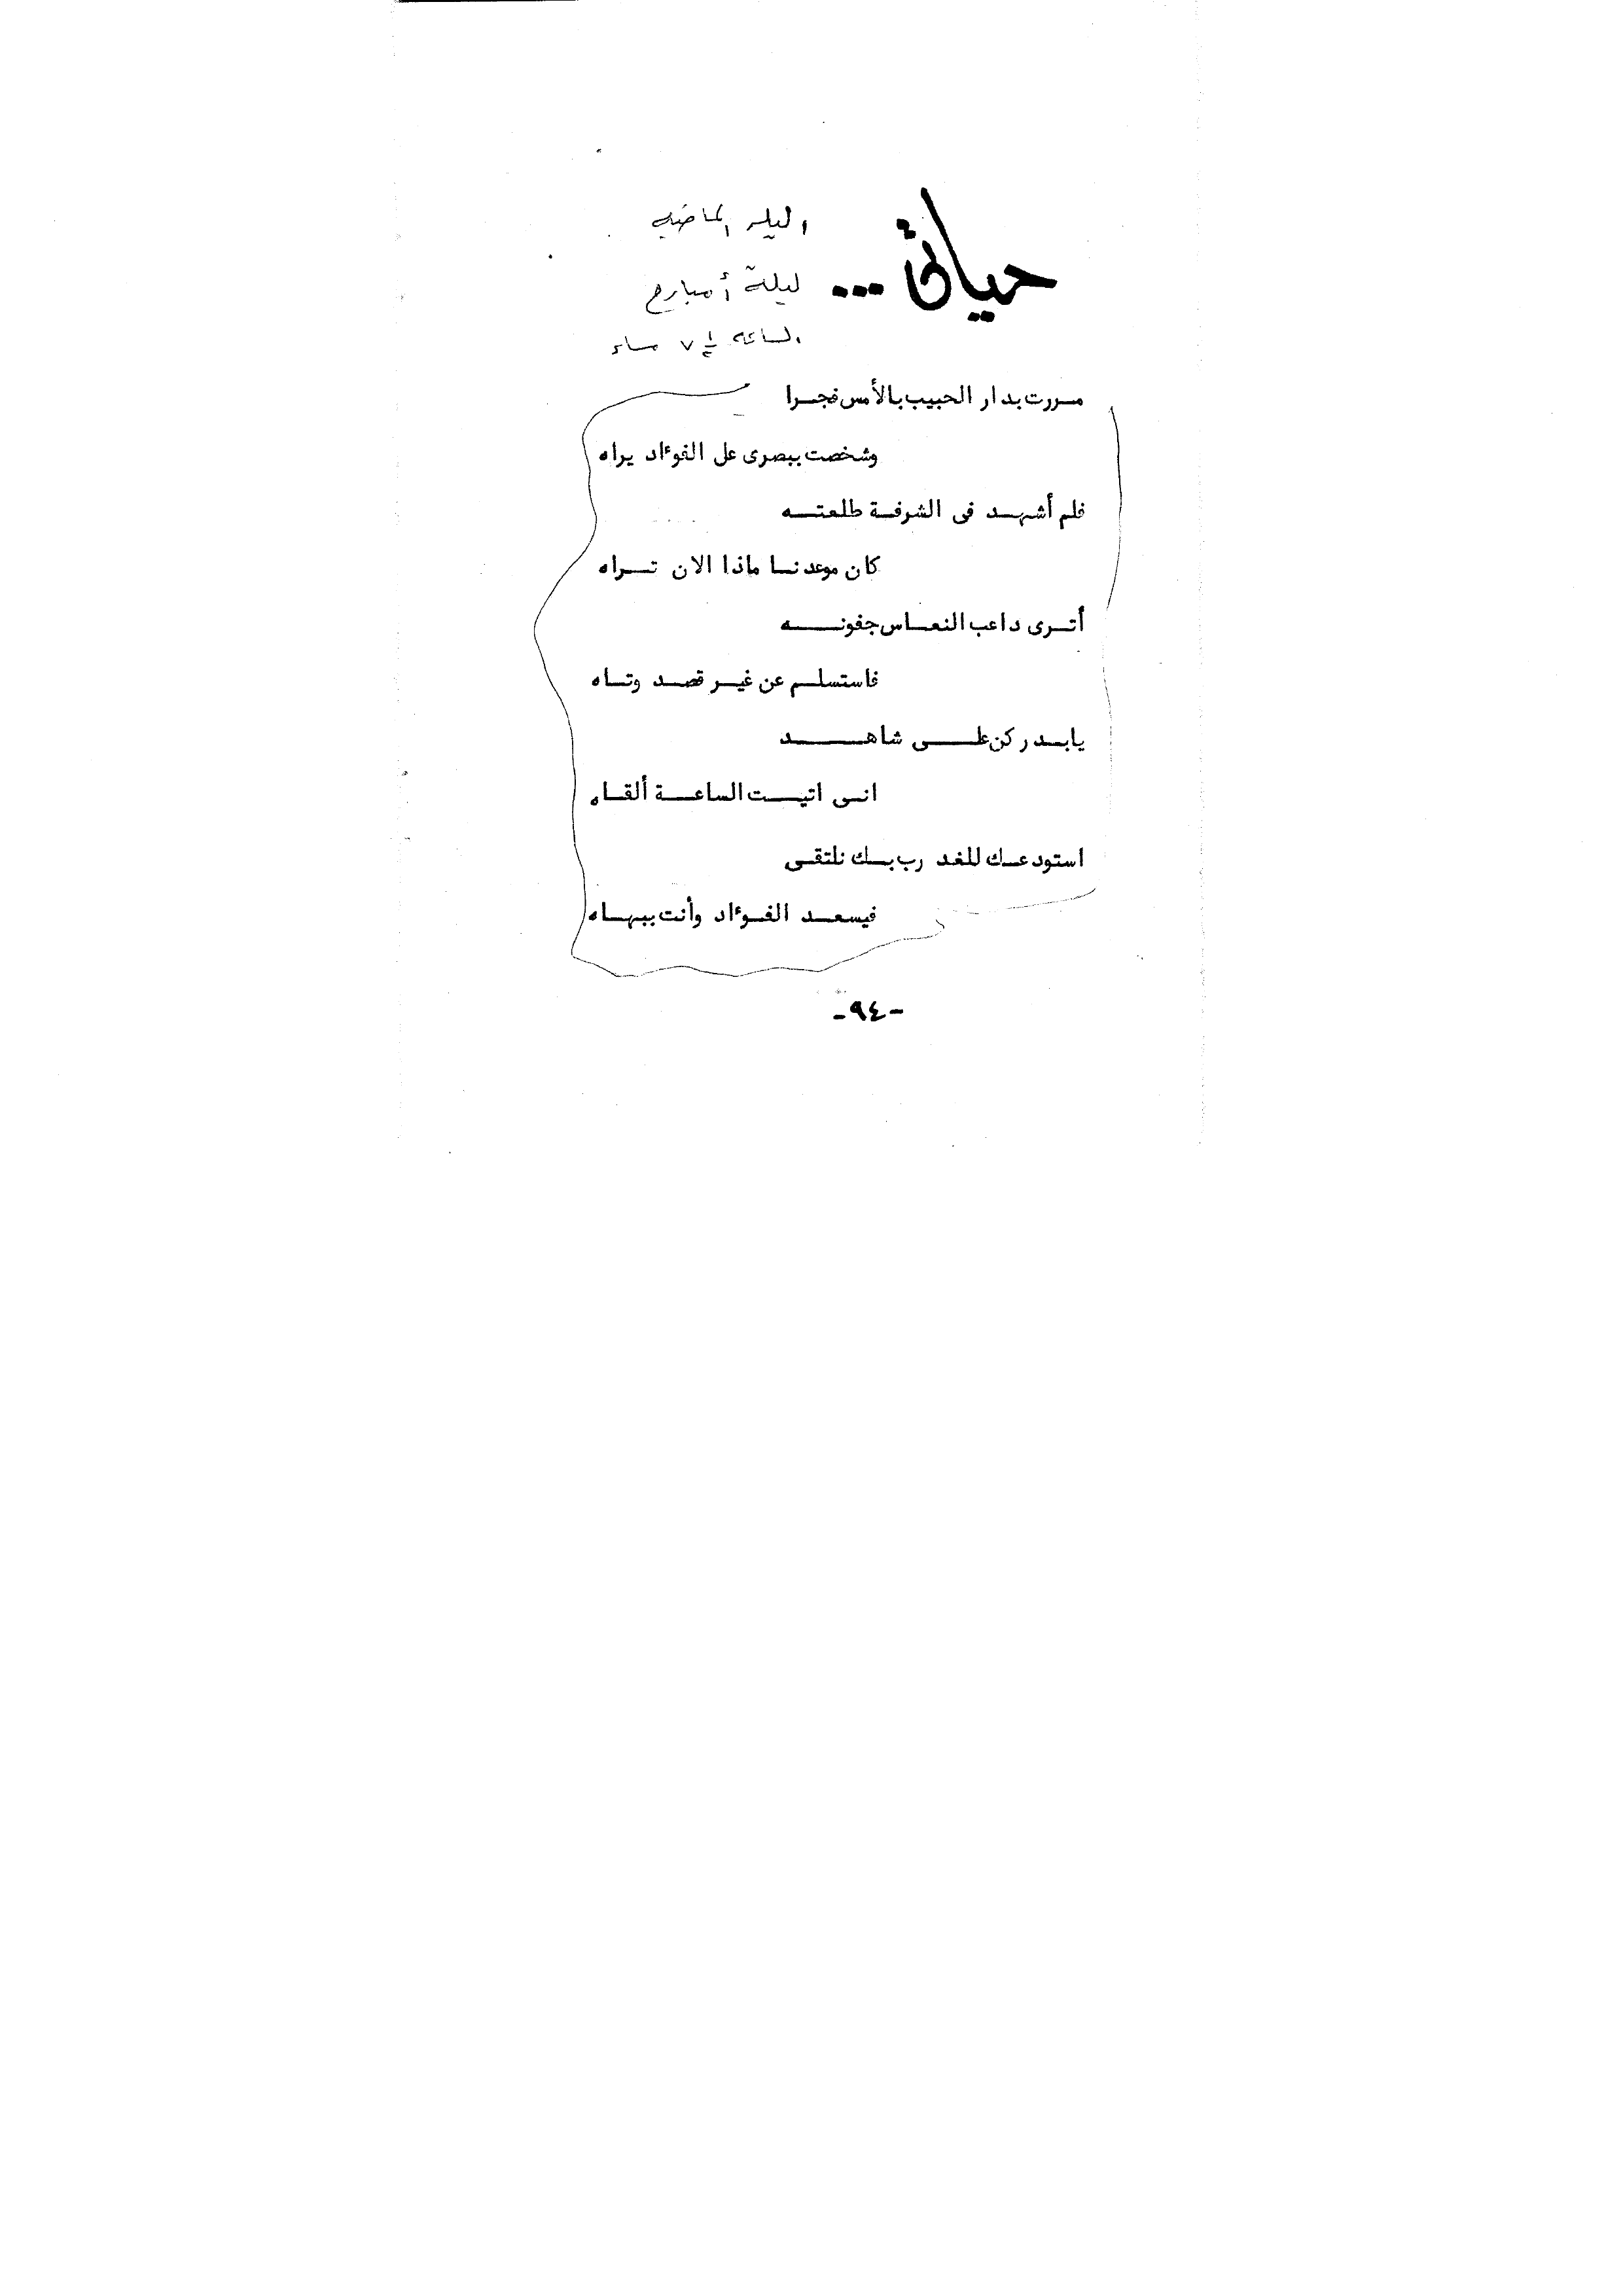 حياتى ...
الليله الماضيه
ليلة أمبارح
الساعه ٧ ١/٢ مساء
مررت بدار الحبيب بالأمس فجرا
وشخصت ببصرى عل الفوءاد يراه
فلم أشهد فى الشرفة طلعته
كان موعدنا ماذا الان تراه
أترى داعب النعاس جفونه
فاستسلم عن غير قصد وتاه
يابدر كن على شاهد
انى اتيت الساعة ألقاه
استودعك للغد رب بك نلتقى
فيسعد الفوءاد وأنت ببهاه
-٩٤-